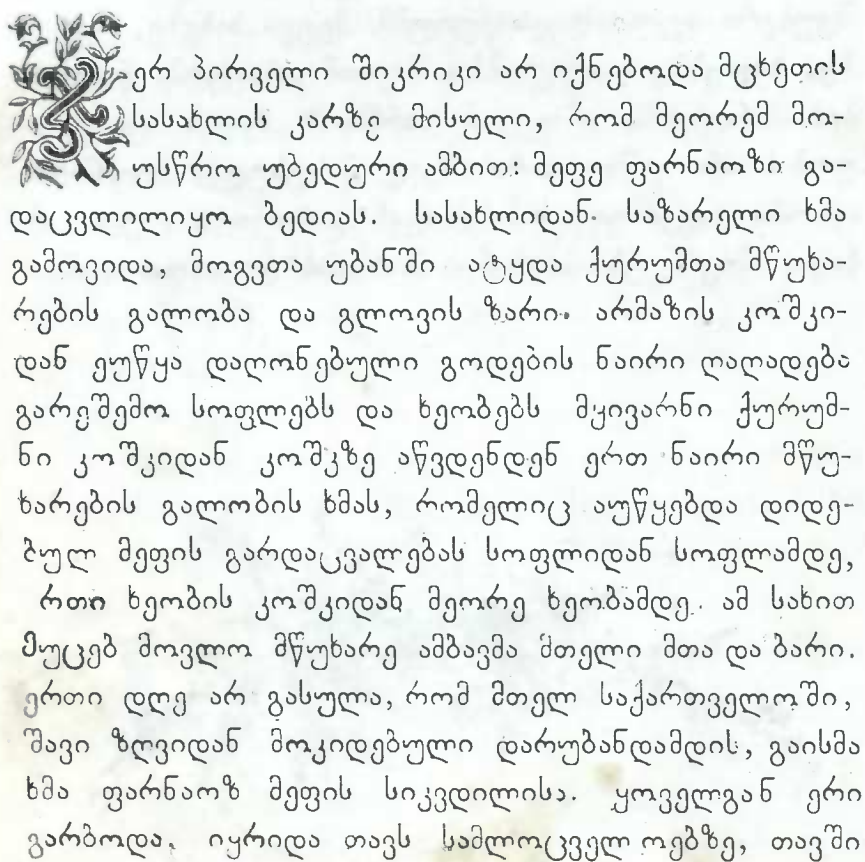 ჯერ პირველი შიკრიკი არ იქნებოდა მცხეთის
სასახლის კარზე მისული, რომ მეორემ მო-
უსწრო უბედური ამბით: მეფე ფარნაოზი გა-
დაცვლილიყო ბედიას. სასახლიდან საზარელი ხმა
გამოვიდა, მოგვთა უბანში ატყდა ქურუმთა მწუხა-
რების გალობა და გლოვის ზარი. არმაზის კოშკი-
დან ეუწყა დაღონებული გოდების ნაირი ღაღადება
გარეშემო სოფლებს და ხეობებს მყივარნი ქურუმ-
ნი კოშკიდან კოშკზე აწვდენდენ ერთ ნაირი მწუ-
ხარების გალობის ხმას, რომელიც აუწყებდა დიდე-
ბულ მეფის გარდაცვალებას სოფლიდან სოფლამდე,
რთი ხეობის კოშკიდან მეორე ხეობამდე. ამ სახით
უცებ მოვლო მწუხარე ამბავმა მთელი მთა და ბარი.
ერთი დღე არ გასულა, რომ მთელ საქართველოში,
შავი ზღვიდან მოკიდებული დარუბანდამდის, გაისმა
ხმა ფარნაოზ მეფის სიკვდილისა. ყოველგან ერი
გარბოდა, იყრიდა თავს სამლოცველოებზე, თავში